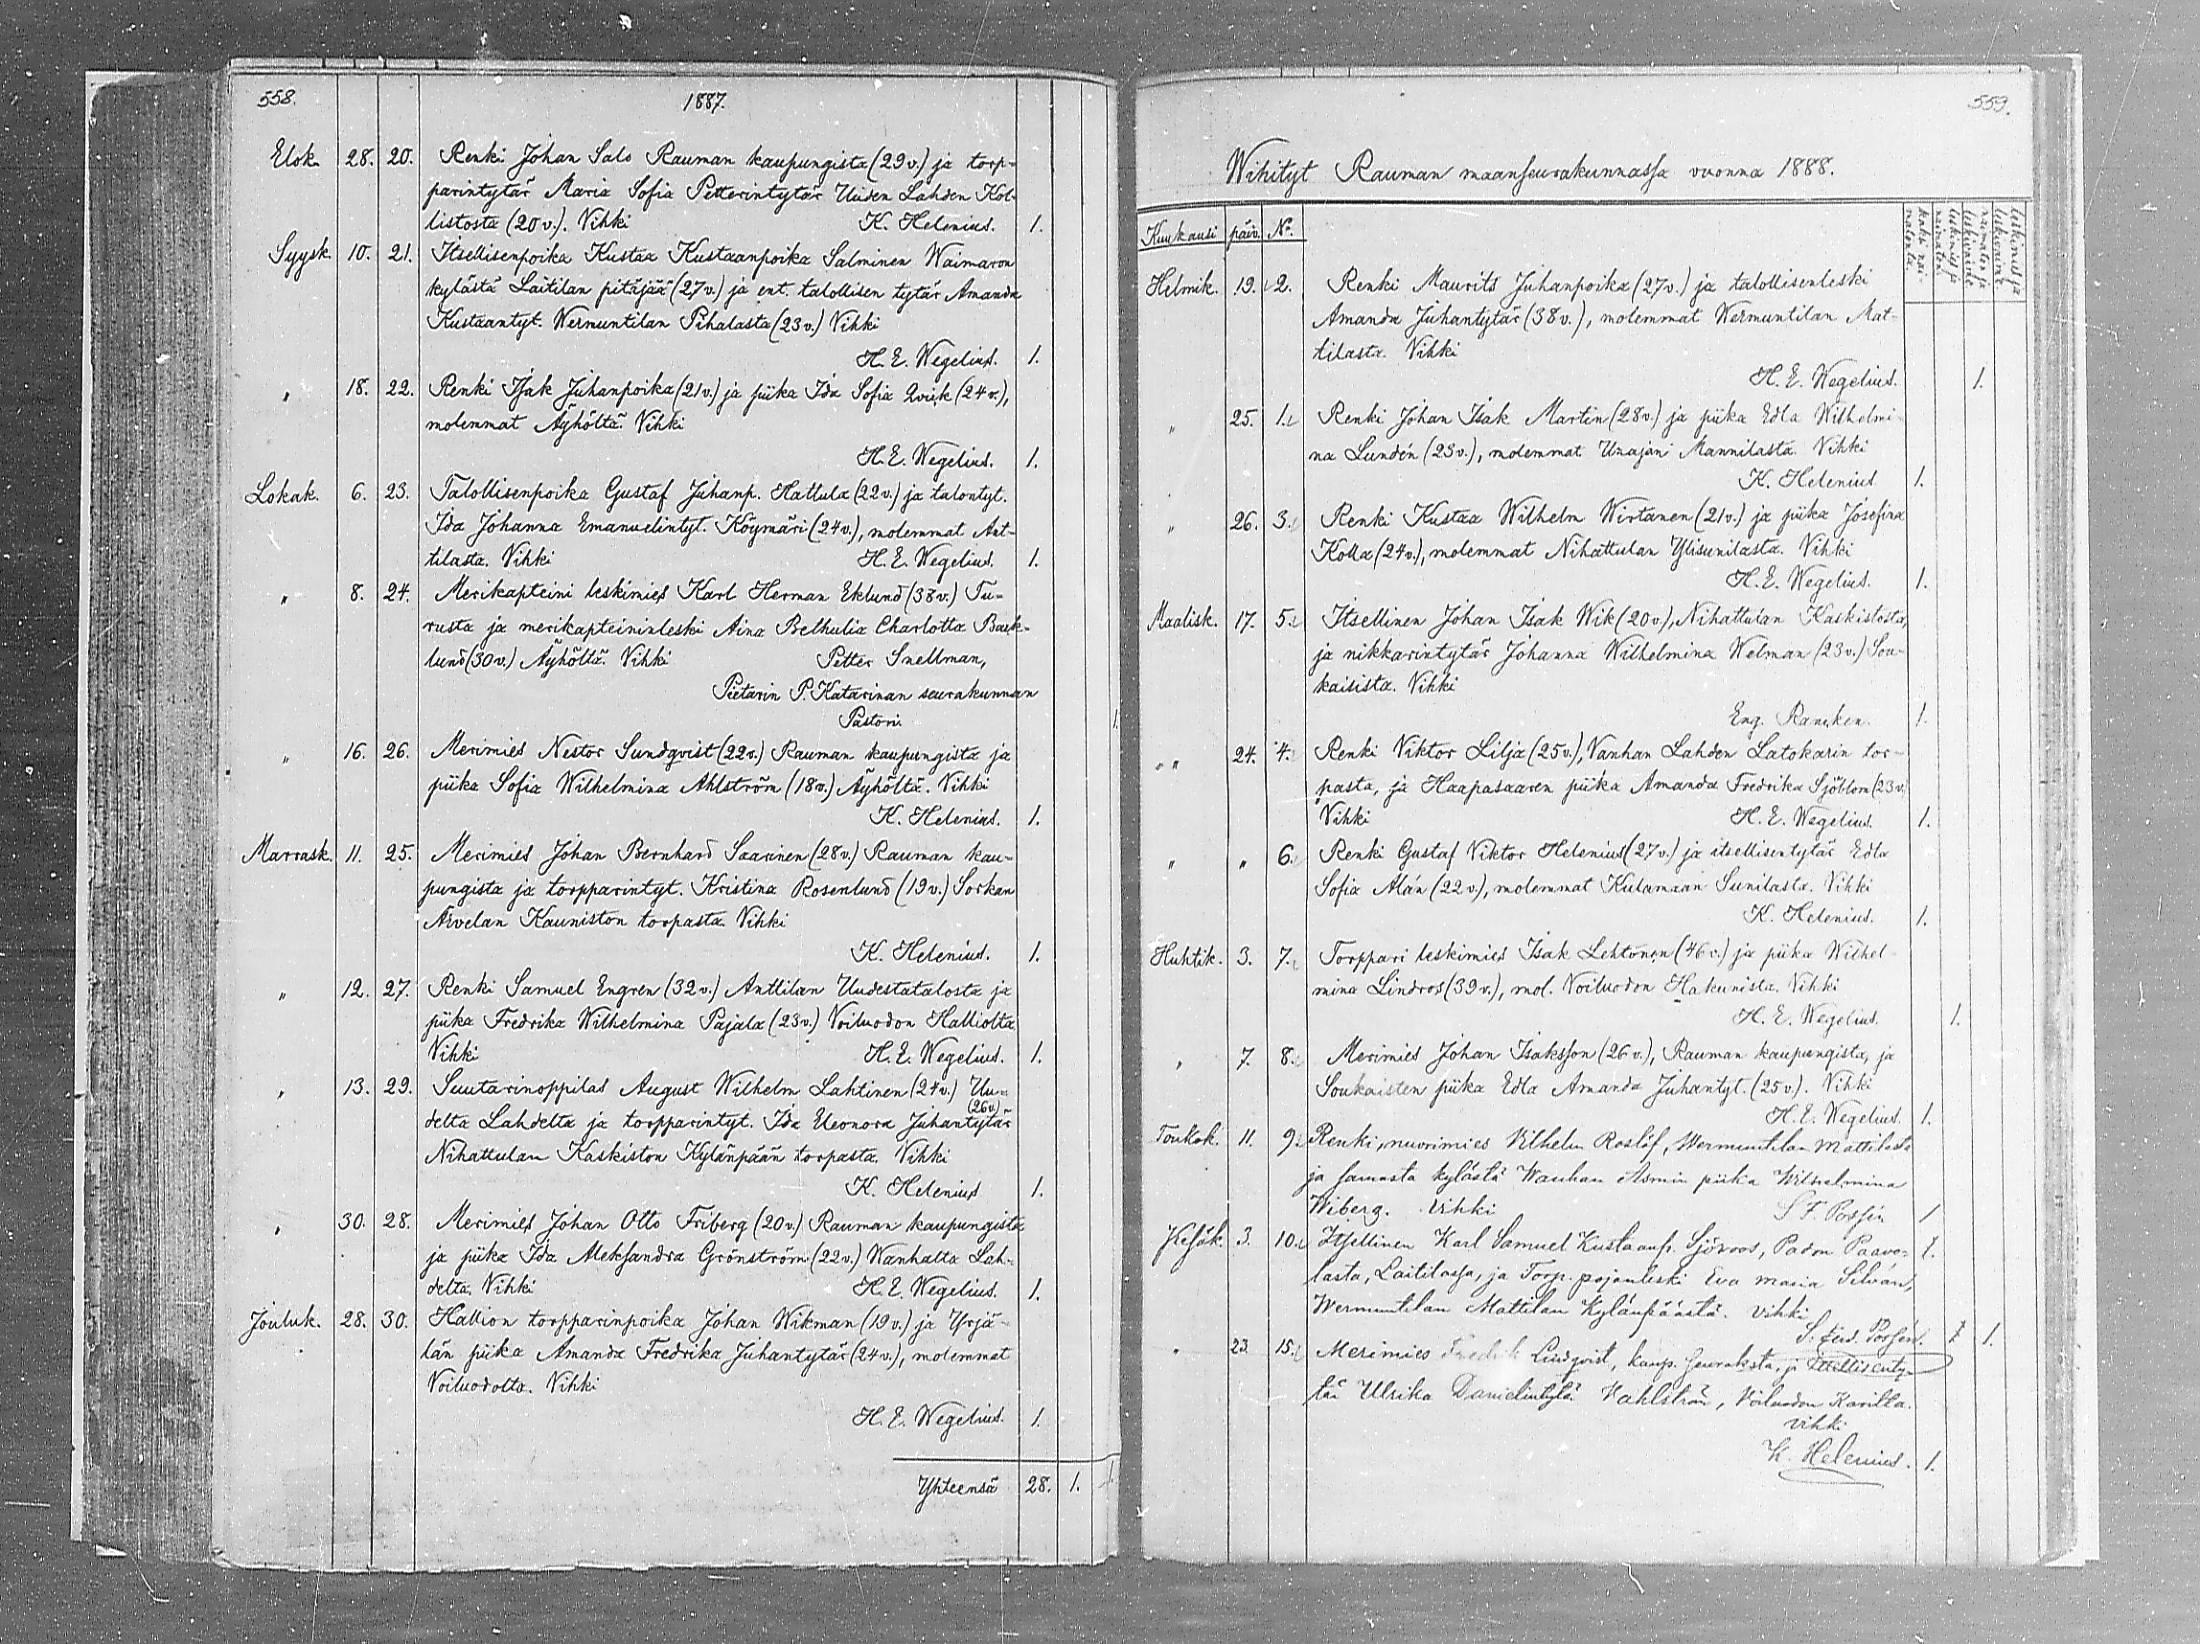 558.
1887.
Elok. 28. 20. Renki Johan Salo Rauman kaupungista (29 v.) ja torp-
parintytär Maria Sofia Petterintytär Uuden Lahden Kol-
listosta (20 v.). Vihki K. Helenius. 1.
Syysk. 10. 21. Itsellisenpoika Kustaa Kustaanpoika Salminen Waimaron
kylästä Laitilan pitäjää (27 v.) ja ent. talollisen tytär Amanda
Kustaantyt. Wermuntilan Pihalasta (23 v.) Vihki
H. E. Wegelius. 1.
" 18. 22. Renki Isak Juhanpoika (21 v.) ja piika Ida Sofia Qvick (24 v.),
molemmat Äyhöltä. Vihki
H. E. Wegelius. 1.
Lokak. 6. 23. Talollisenpoika Gustaf Juhanp. Hattula (22 v.) ja talontyt.
Ida Johanna Emanuelintyt. Köymäri (24 v.), molemmat Ant-
tilasta. Vihki H. E. Wegelius. 1.
" 8. 24. Merikapteini leskimies Karl Herman Eklund (38 v.) Tu-
rusta ja merikapteininleski Aina Bethulia Charlotta Back-
lund (30 v.) Äyhöltä. Vihki Petter Snellman,
Pietarin P. Katarinan seurakunnan
Pastori. 1.
" 16. 26. Merimies Nestor Sundqvist (22 v.) Rauman kaupungista ja
piika Sofia Wilhelmina Ahlström (18 v.) Äyhöltä. Vihki
K. Helenius. 1.
Marrask. 11. 25. Merimies Johan Bernhard Saarinen (28 v.) Rauman kau-
pungista ja torpparintyt. Kristina Rosenlund (19 v.) Sorkan
Arvelan Kauniston torpasta. Vihki
K. Helenius. 1.
" 12. 27. Renki Samuel Engren (32 v.) Anttilan Uudestatalosta ja
piika Fredrika Wilhelmina Pajala (23 v.) Voiluodon Halliolta
Vihki H. E. Wegelius. 1.
" 13. 29. Suutarinoppilas August Wilhelm Lahtinen (24 v.) Uu-
delta Lahdelta ja torpparintyt. Ida Eleonora Juhantytär (26 v.)
Nihattulan Kaskiston Kylänpään torpasta. Vihki
K. Helenius 1.
" 30. 28. Merimies Johan Otto Friberg (20 v.) Rauman kaupungista
ja piika Ida Aleksandra Grönström (22 v.) Wanhalta Lah-
delta. Vihki H. E. Wegelius. 1.
Jouluk. 28. 30. Hallion torpparinpoika Johan Wikman (19 v.) ja Yrjä-
län piika Amanda Fredrika Juhantytär (24 v.), molemmat
Voiluodolta. Vihki
H. E. Wegelius. 1.
Yhteensä 28. 1.
559.
Wihityt Rauman maanseurakunnassa vuonna 1888.
Kuukausi päiv. No.
Helmik. 19. 2. Renki Maurits Juhanpoika (27 v.) ja talollisenleski
Amanda Juhantytär (38 v.), molemmat Wermuntilan Mat-
tilasta. Vihki
H. E. Wegelius. 1.
" 25. 1. Renki Johan Isak Martin (28 v.) ja piika Edla Wilhelmi-
na Lundén (23 v.), molemmat Unajan Mannilasta. Vihki
K. Helenius 1.
" 26. 3. Renki Kustaa Wilhelm Wirtanen (21 v.) ja piika Josefina
Kolla (24 v.), molemmat Nihattulan Ylisunilasta. Vihki
H. E. Wegelius. 1.
Maalisk. 17. 5. Itsellinen Johan Isak Wik (20 v.), Nihattulan Kaskistosta,
ja nikkarintytär Johanna Wilhelmina Welman (23 v.) Sou-
kaisista. Vihki
Eng. Rancken. 1.
" 24. 4. Renki Viktor Lilja (25 v.), Vanhan Lahden Latokarin tor-
pasta, ja Haapasaaren piika Amanda Fredrika Sjöblom (23 v.)
Vihki H. E. Wegelius. 1.
" " 6. Renki Gustaf Viktor Helenius (27 v.) ja itsellisentytär Edla
Sofia Alán (22 v.), molemmat Kulamaan Sunilasta. Vihki
K. Helenius. 1.
Huhtik. 3. 7. Torppari leskimies Isak Lehtonen (46 v.) ja piika Wilhel-
mina Lindros (39 v.), mol. Voiluodon Hakunista. Vihki
H. E. Wegelius. 1.
" 7. 8. Merimies Johan Isaksson (26 v.), Rauman kaupungista, ja
Soukaisten piika Edla Amanda Juhantyt. (25 v.). Vihki
H. E. Wegelius. 1.
Toukok. 11. 9. Renki, nuorimies Vilhelm Roslöf, Wermuntilan Mattilasta
ja samasta kylästä Wanhan Asmin piika Wilhelmina
Wiberg. Vihki 1
Kesäk. 3. 10. Itsellinen Karl Samuel Kustaanp. Sjöroos, Padon Paavo-
lasta, Laitilassa, ja Torp. pojanleski Eva Maria Silvan,
Wermuntilan Mattilan Kylänpäästä. Vihki
1.
" 23. 15. Merimies Fredrik Lindqvist, kaup. seuraksta, ja Itsellisenty-
tär Ulrika Danielintytär Wahlström, Voiluodon Kavilla.
Vihki
K. Helenius. 1.